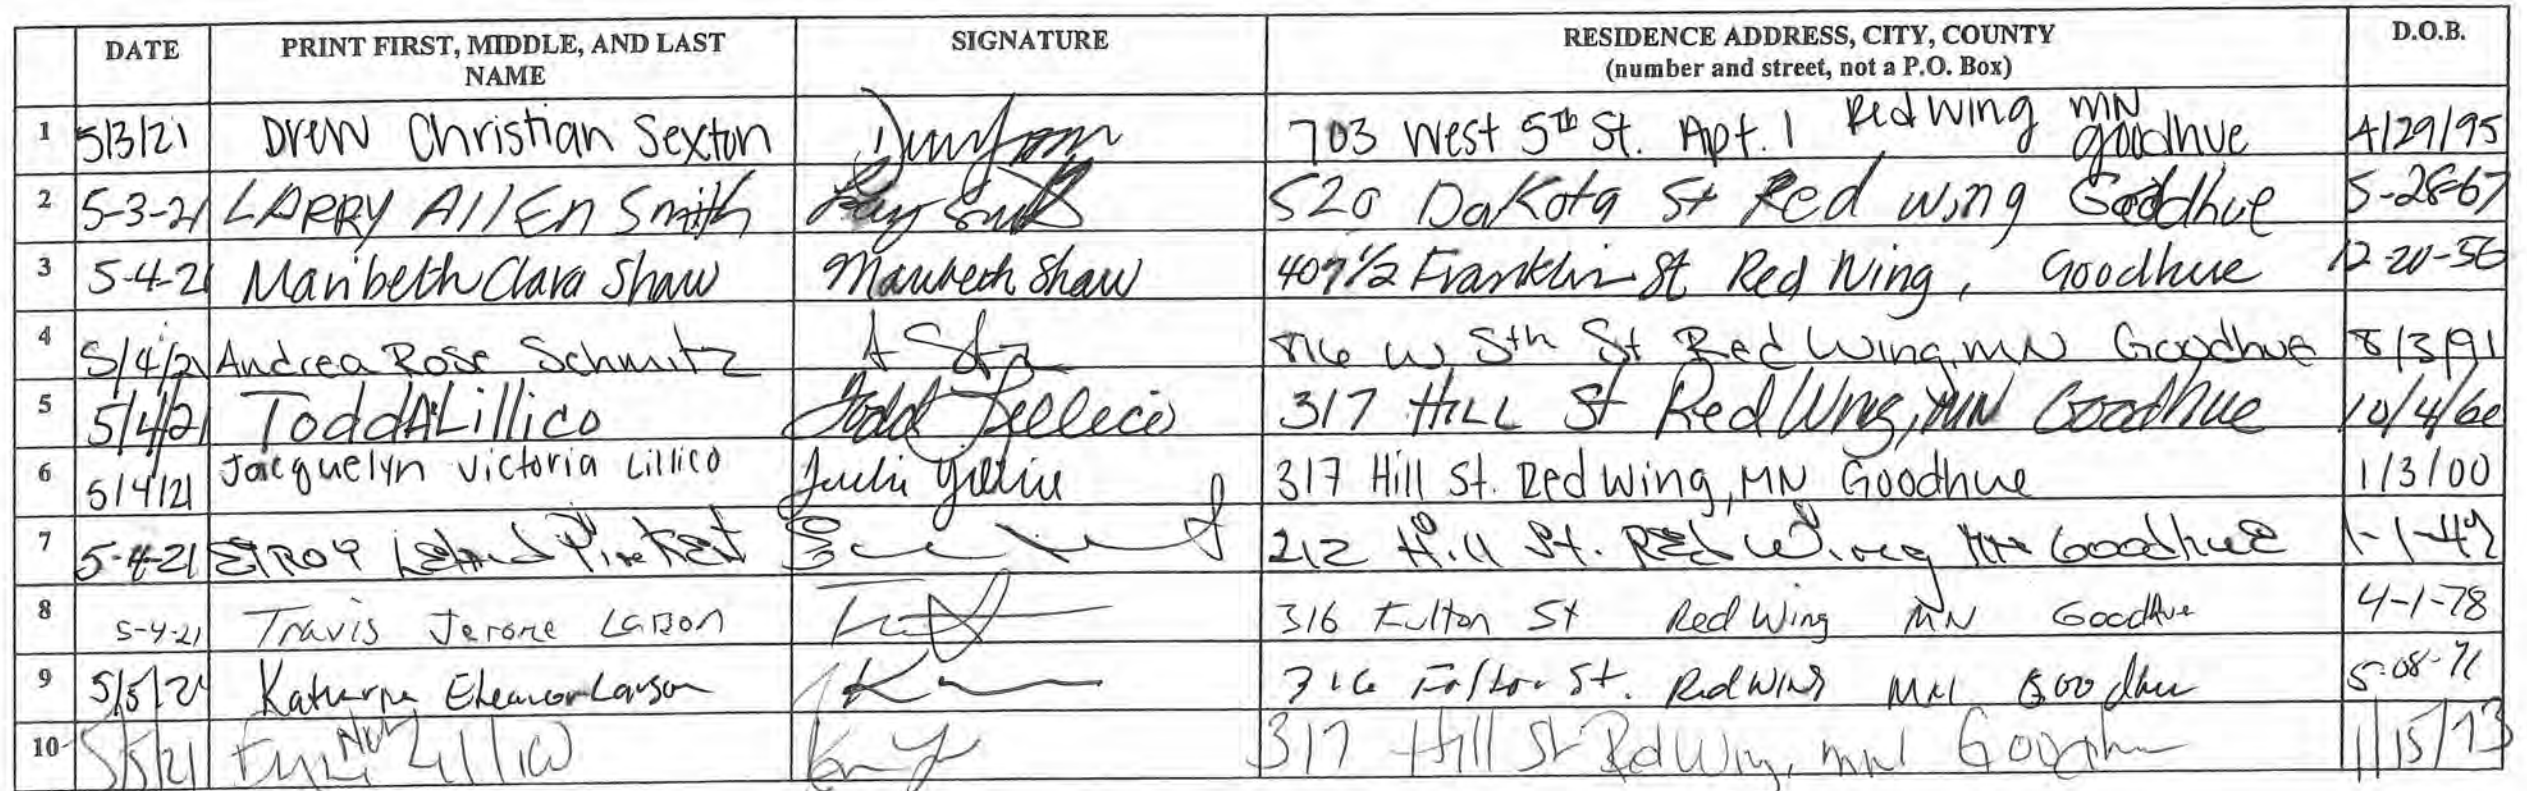 DATE PRINT FIRST, MIDDLE, AND LAST NAME SIGNATURE RESIDENCE ADDRESS, CITY, COUNTY (number and street, not a P.O. Box) D.O.B.
1 5/3/21 Drew Christian Sexton 703 West 5th St. Apt. 1 Red Wing MN Goodhue 4/29/95
2 5-3-21 LARRY AllEn Smith Larry Smith 520 Dakota St Red wing Goodhue 5-28-67
3 5-4-21 Maribeth Clara Shaw Maribeth Shaw 407 1/2 Franklin St Red Wing, Goodhue 12-20-56
4 5/4/21 Andrea Rose Schmitz 816 W 5th St Red Wing, MN Goodhue 8/3/91
5 5/4/21 Todd A Lillico Todd Lillico 317 HILL St Red Wing, MN Goodhue 10/4/60
6 5/4/21 Jacquelyn Victoria Lillico 317 Hill St. Red Wing, MN Goodhue 1/3/00
7 5-4-21 ElROY 212 Hill St. REd Wing MN GoodhuE 1-1-
8 5-4-21 Travis Jerome Larson 316 Fulton St Red Wing MN Goodhue 4-1-78
9 5/5/21 Eleanor Larson 316 Fulton St. Red Wing MN Goodhue 5-08-
10 5/5/21 Lillico 317 Hill St Red Wing, MN Goodhue 1/15/73